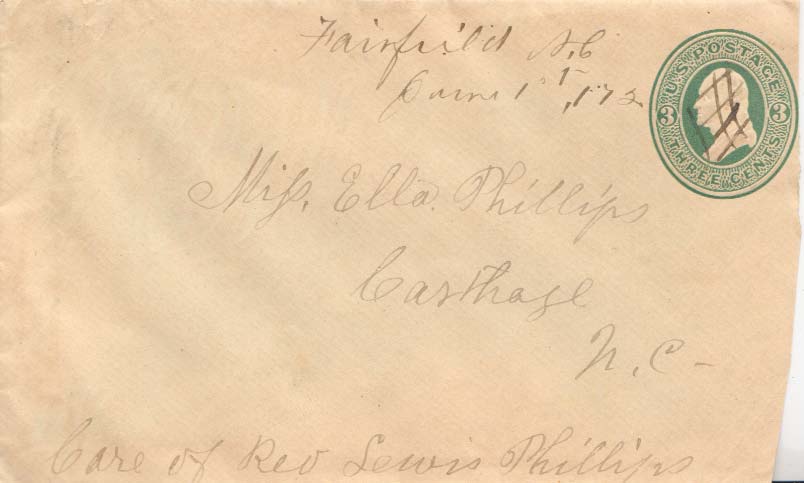 Fairfield N.C
June 1st, 172
U.S. POSTAGE
3 3
THREE CENTS
Miss. Ella. Phillips
Carthage
N. C -
Care of Rev Lewis Phillips